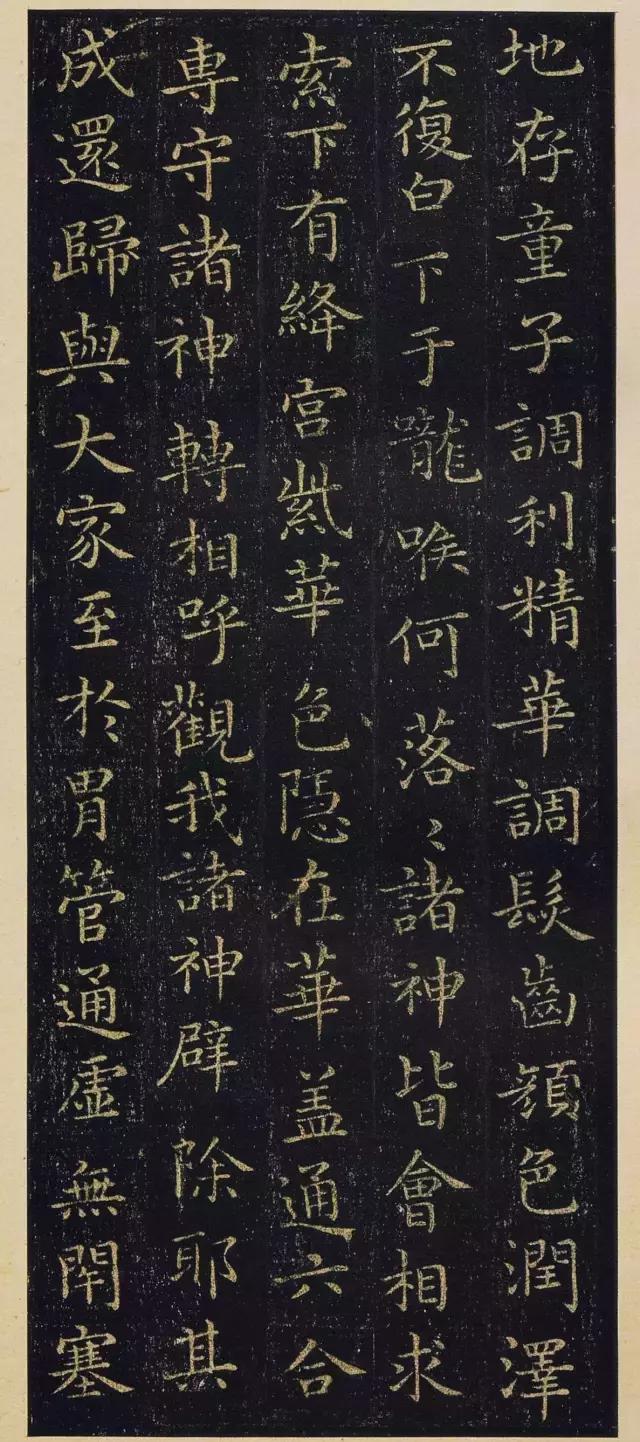 地存童子調利精華調髮齒顏色潤澤
不復白下于嚨喉何落〻諸神皆會相求
索下有絳宮紫華色隱在華盖通六合
專守諸神轉相呼觀我諸神辟除耶其
成還歸與大家至於胃管通虛無閇塞